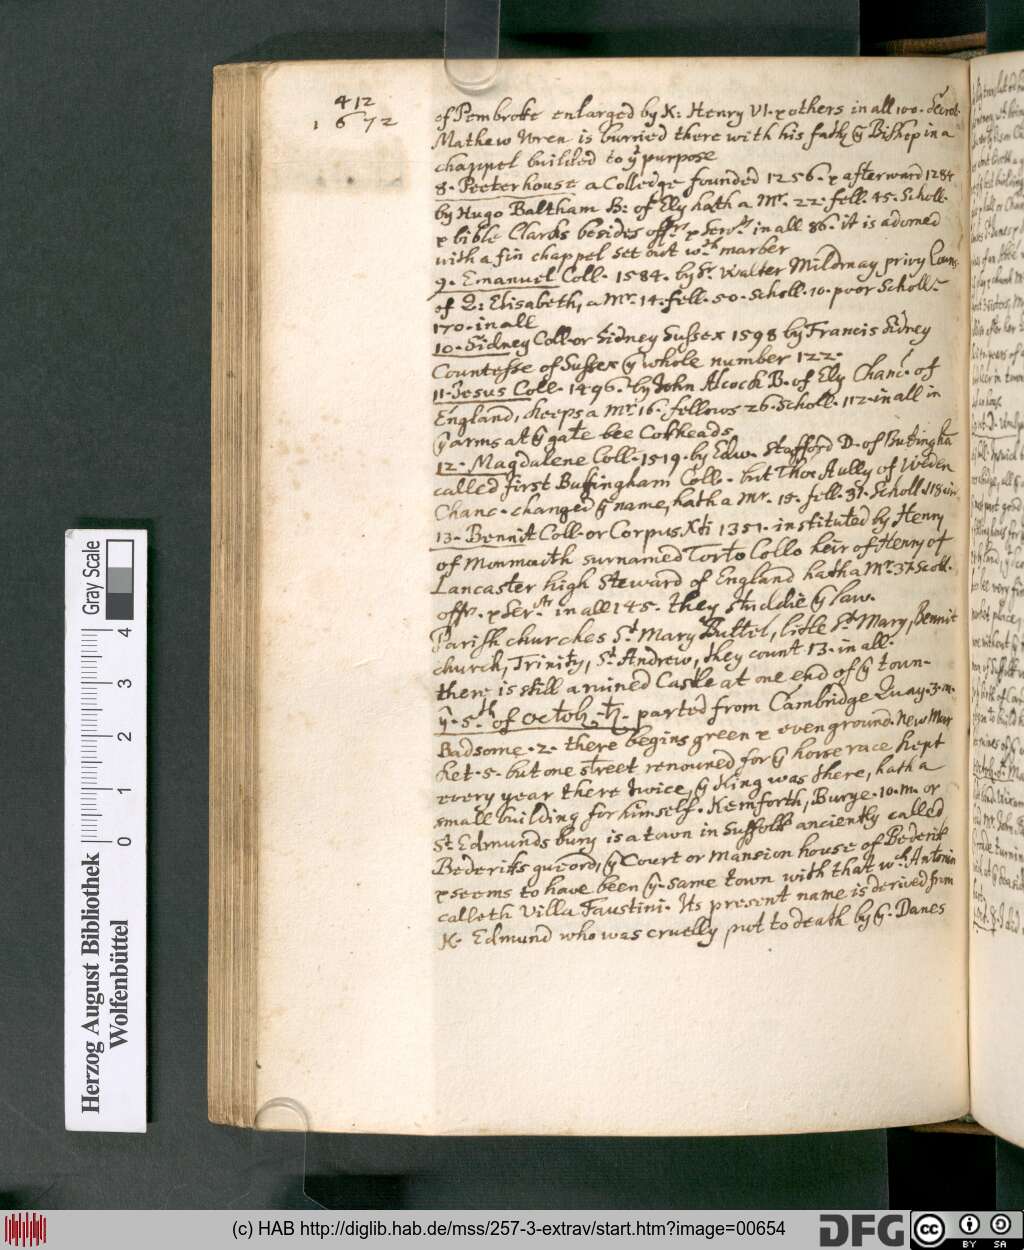 412
1672
of Pembroke enlarged by K: Henry VI. & others in all 100. Secret.
Mathew Wren is burried there with his fath. ye Bishop in a
chappel builded to yt purpose
8. Peeterhouse a Colledge founded 1256. & afterward 1284
by Hugo Baltham B: of Ely hath a Mr. 22. fell. 45. Scholl.
& bible Clarks besides offrs. & Servts. in all 86. it is adorned
with a fin chappel set out wth marber
9. Emanuel Coll. 1584. by Sr. Walter Mildmay privy Couns.
of Q: Elisabeth, a Mr. 14. fell. 50. Scholl. 10. poor Scholl.
170. in all
10. Sidney Coll. or Sidney Sussex 1598 by Francis Sidney
Countesse of Sussex ye whole number 122.
11. Jesus Coll. 1496. by John Alcock B. of Ely Chanc. of
England, keeps a Mr. 16. fellows 26. Scholl. 112. in all in
ye arms at ye gate bee Cokheads
12. Magdalene Coll. 1519. by Edw. Stafford D. of Butingha
called first Buffingham Coll. but Tho: Aully of
Chanc. changed ye name, hath a Mr. 15. fell. 37. Scholl. 118 in
13. Bennit Coll. or Corpus Xti 1351. instituted by Henry
of Monmouth surnamed Torto Collo heir of Henry of
Lancaster high Steward of England hath a Mr. 37. Scoll.
offrs. & Servts in all 145. they studdie ye law.
Parish churches St. Mary Buttel, litle St. Mary, Bennit
church, Trinity, St. Andrew, they count 13. in all.
there is still a ruined Castle at one end of ye town.
ye. 5.th of Octob. ♄. parted from Cambridge Quay. 3. m.
Badsome. 2. there begins green & even ground. New Mar
ket. 5. but one street renouned for ye horse race kept
every year there twice, ye King was there, hath a
small building for himself. Kemforth, Burye. 10. m. or
St. Edmunds bury is a town in Suffolk anciently called
Bederiks gueord, ye Court or mansion house of Bederik
& seems to have been ye same town with that wch Antonin
calleth Villa Faustini. Its present name is derived from
K. Edmund who was cruelly put to death by ye. Danes
Herzog August Bibliothek
Wolfenbüttel
Gray Scale
0 1 2 3 4
(c) HAB http://diglib.hab.de/mss/257-3-extrav/start.htm?image=00654
DFG
cc BY SA